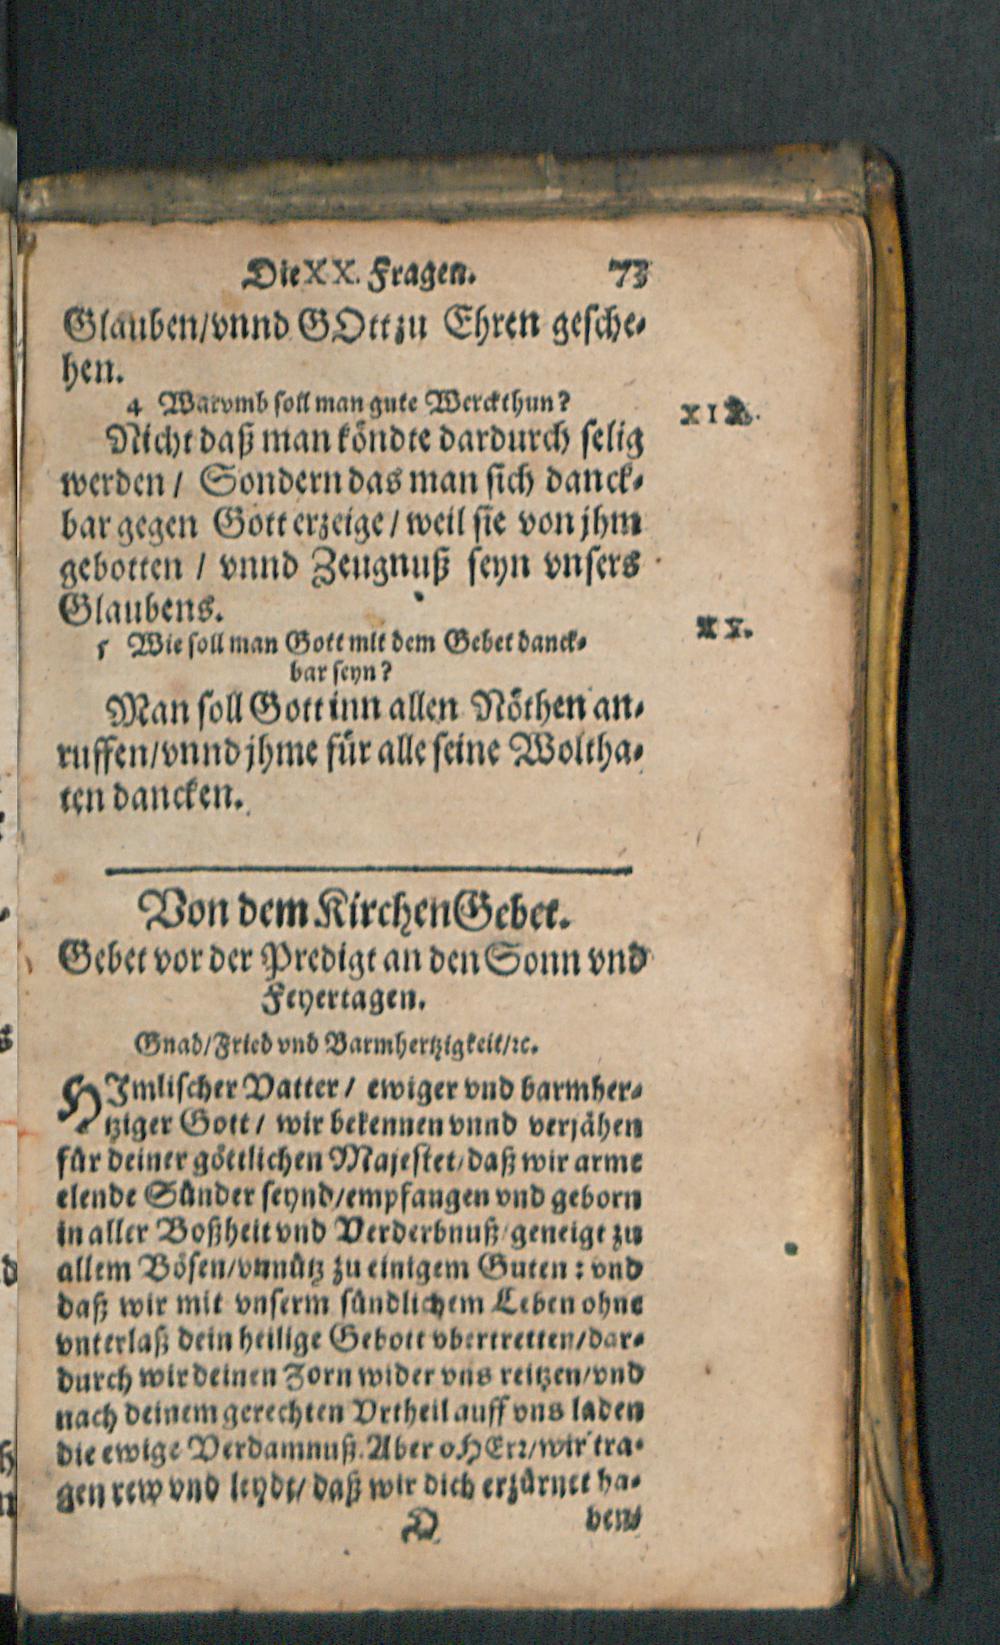 Die XX. Fragen. 73
Glauben/vnnd GOtt zu Ehren gesche-
hen.
4 Warvmb soll man gute Werck thun?
XIX.
Nicht daß man köndte dardurch selig
werden / Sondern das man sich danck-
bar gegen Gott erzeige / weil sie von jhm
gebotten / vnnd Zeugnuß seyn vnsers
Glaubens.
5 Wie soll man Gott mit dem Gebet danck-
XX.
bar seyn?
Man soll Gott inn allen Nöthen an-
ruffen/vnnd jhme für alle seine Woltha-
ten dancken.
Von dem KirchenGebet.
Gebet vor der Predigt an den Sonn vnd
Feyertagen.
Gnad/Fried vnd Barmhertzigkeit/ꝛc.
HImlischer Vatter / ewiger vnd barmher-
tziger Gott / wir bekennen vnnd verjähen
für deiner göttlichen Majestet/daß wir arme
elende Sünder seynd/empfangen vnd geborn
in aller Boßheit vnd Verderbnuß/geneigt zu
allem Bösen/vnnütz zu einigem Guten : vnd
daß wir mit vnserm sündlichem Leben ohne
vnterlaß dein heilige Gebott vbertretten/dar-
durch wir deinen Zorn wider vns reitzen/vnd
nach deinem gerechten Vrtheil auff vns laden
die ewige Verdamnuß. Aber o HErr/wir tra-
gen rew vnd leydt/daß wir dich erzürnet ha-
D ben/